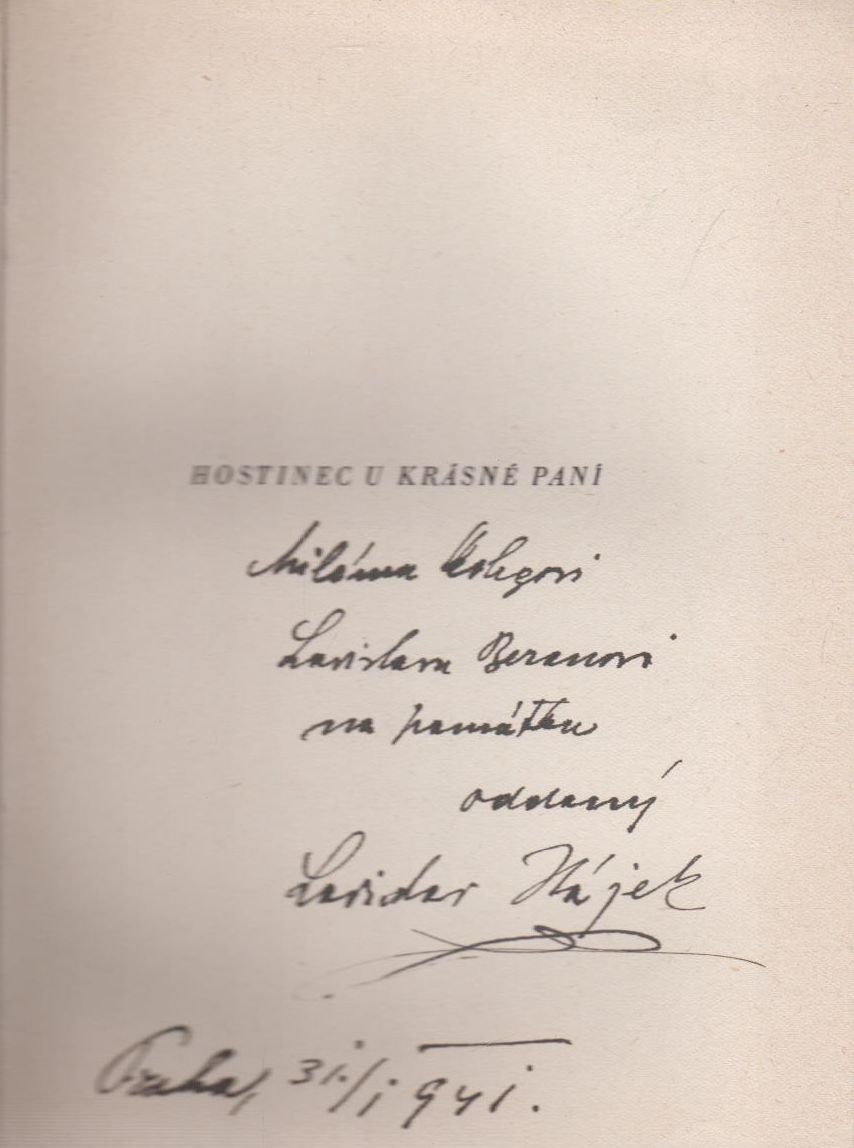 HOSTINEC U KRÁSNÉ PANÍ
Milému kolegovi
Ladislavu Beranovi
na památku
oddaný
Ladislav Hájek
Praha, 31./I 1941.